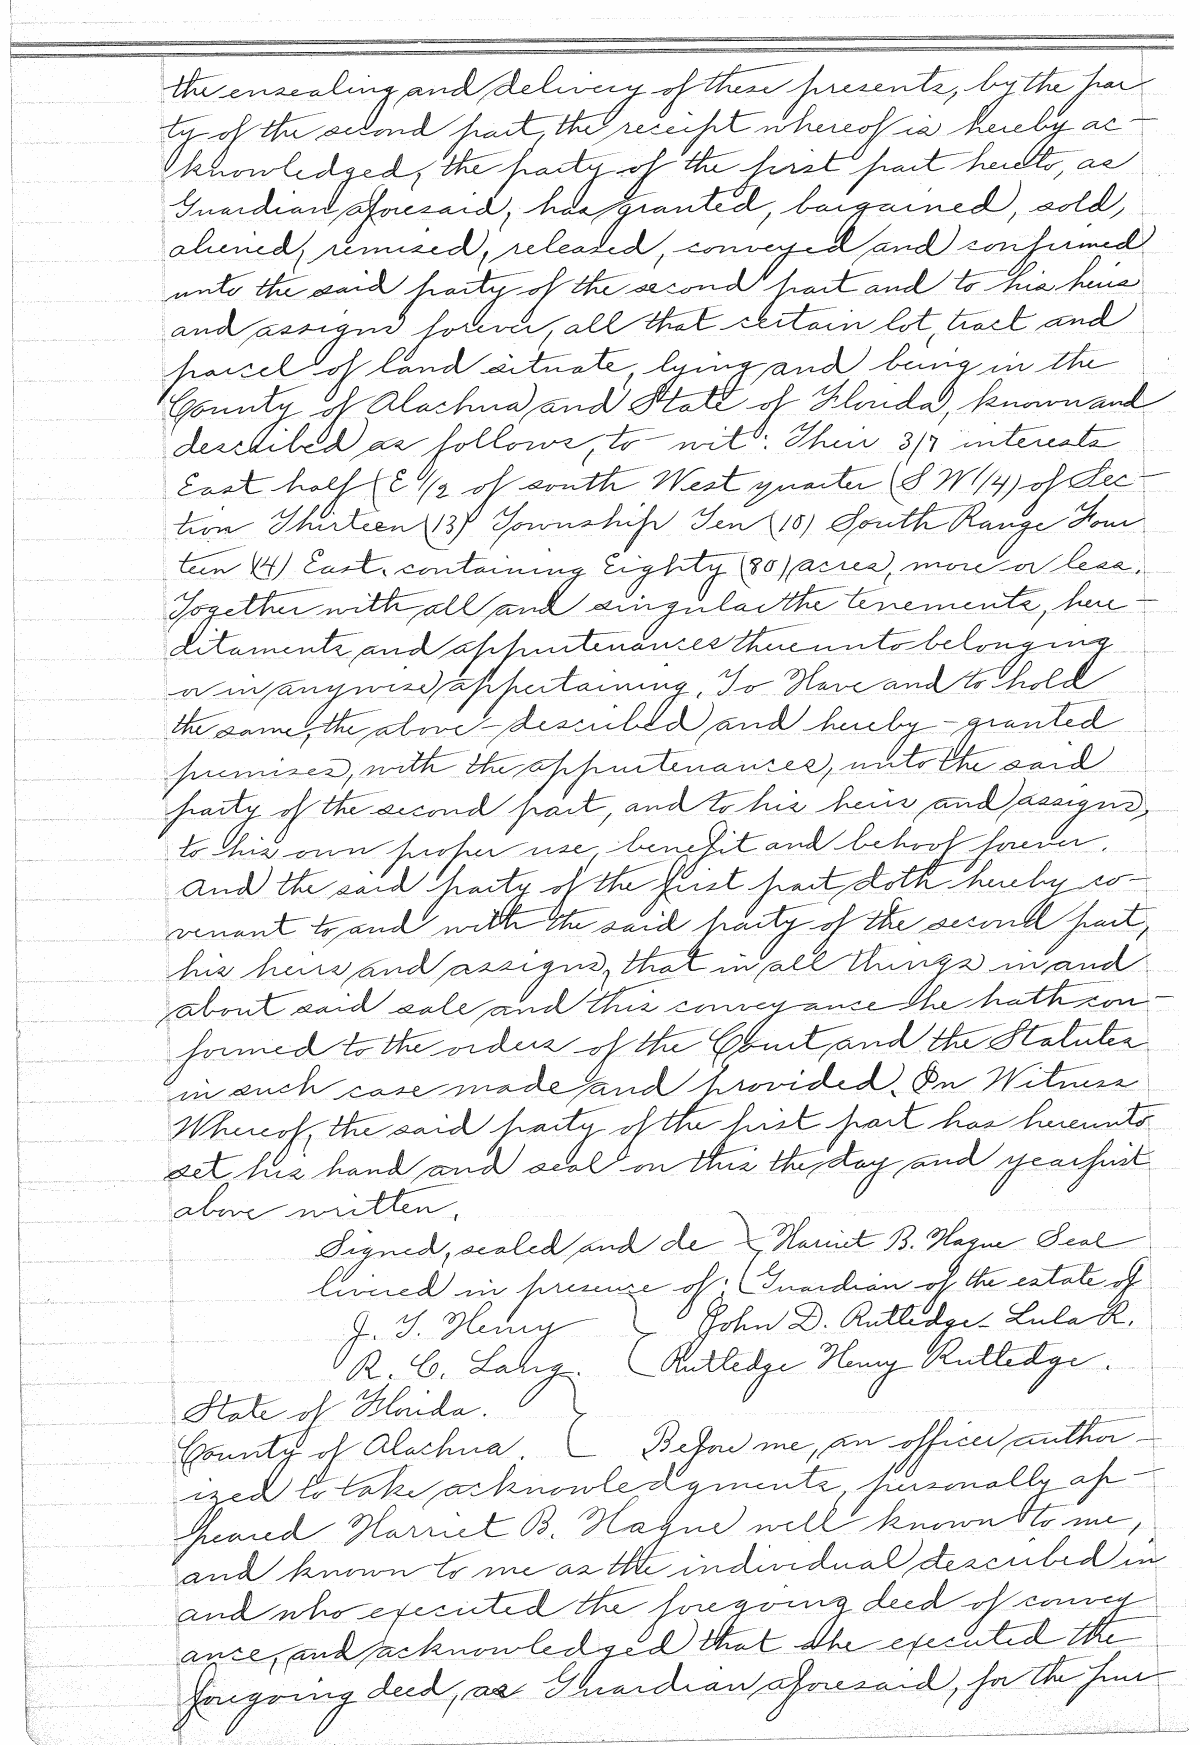 the ensealing and delivery of these presents, by the par
ty of the second part, the receipt whereof is hereby ac-
knowledged, the party of the first part hereto, as
Guardian aforesaid, has granted, bargained, sold,
aliened, remised, released, conveyed and confirmed
unto the said party of the second part and to his heirs
and assigns forever, all that certain lot, tract and
parcel of land situate, lying and being in the
County of Alachua and State of Florida, known and
described as follows, to-wit: Their 3/7 interests
East half (E 1/2 of south West quarter (S W 1/4) of Sec-
tion Thirteen (13) Township Ten (10) South Range Four
teen (14) East. containing Eighty (80) acres, more or less.
Together with all and singular the tenements, here-
ditaments and appurtenances thereunto belonging
or in anywise appertaining. To Have and to hold
the same, the above-described and hereby-granted
premises, with the appurtenances, unto the said
party of the second part, and to his heirs and assigns,
to his own proper use, benefit and behoof forever.
And the said party of the first part doth hereby co-
venant to and with the said party of the second part,
his heirs and assigns, that in all things in and
about said sale and this conveyance she hath con-
formed to the orders of the Court and the Statutes
in such case made and provided. In Witness
Whereof, the said party of the first part has hereunto
set his hand and seal on this the day and year first
above written.
Signed, sealed and de } Harriet B. Hague Seal
livered in presence of: ( Guardian of the estate of
J. T. Henry } John D. Rutledge- Lula R.
R. C. Lang. ( Rutledge Henry Rutledge.
State of Florida.
County of Alachua. } Before me, an officer author-
ized to take acknowledgments, personally ap-
peared Harriet B. Hague well known to me,
and known to me as the individual described in
and who executed the foregoing deed of convey
ance, and acknowledged that she executed the
foregoing deed, as Guardian aforesaid, for the pur